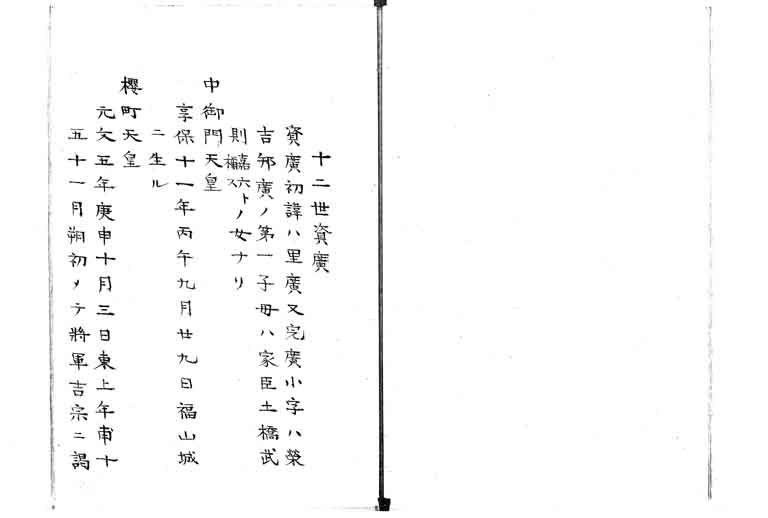 十二世資廣
資廣初諱ハ里廣又完廣小字ハ榮
吉邦廣ノ第一子母ハ家臣土橋武
則嘉六ト稱スノ女ナリ
中御門天皇
享保十一年丙午九月廿九日福山城
ニ生ル
櫻町天皇
元文五年庚申十月三日東上年甫十
五十一月朔初メテ將軍吉宗ニ謁